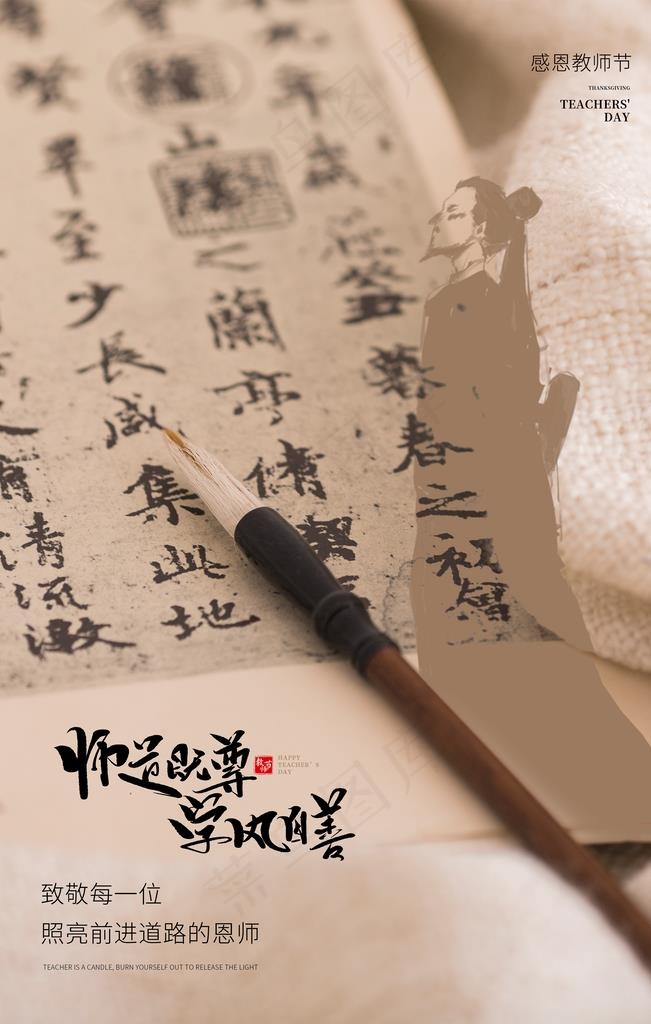 感恩教师节
THANKSGIVING
TEACHERS'
DAY
春之初
之蘭亭
少長咸集此地
清流激
师道既尊
学风自善
教师节
HAPPY
TEACHER'S
DAY
致敬每一位
照亮前进道路的恩师
TEACHER IS A CANDLE, BURN YOURSELF OUT TO RELEASE THE LIGHT